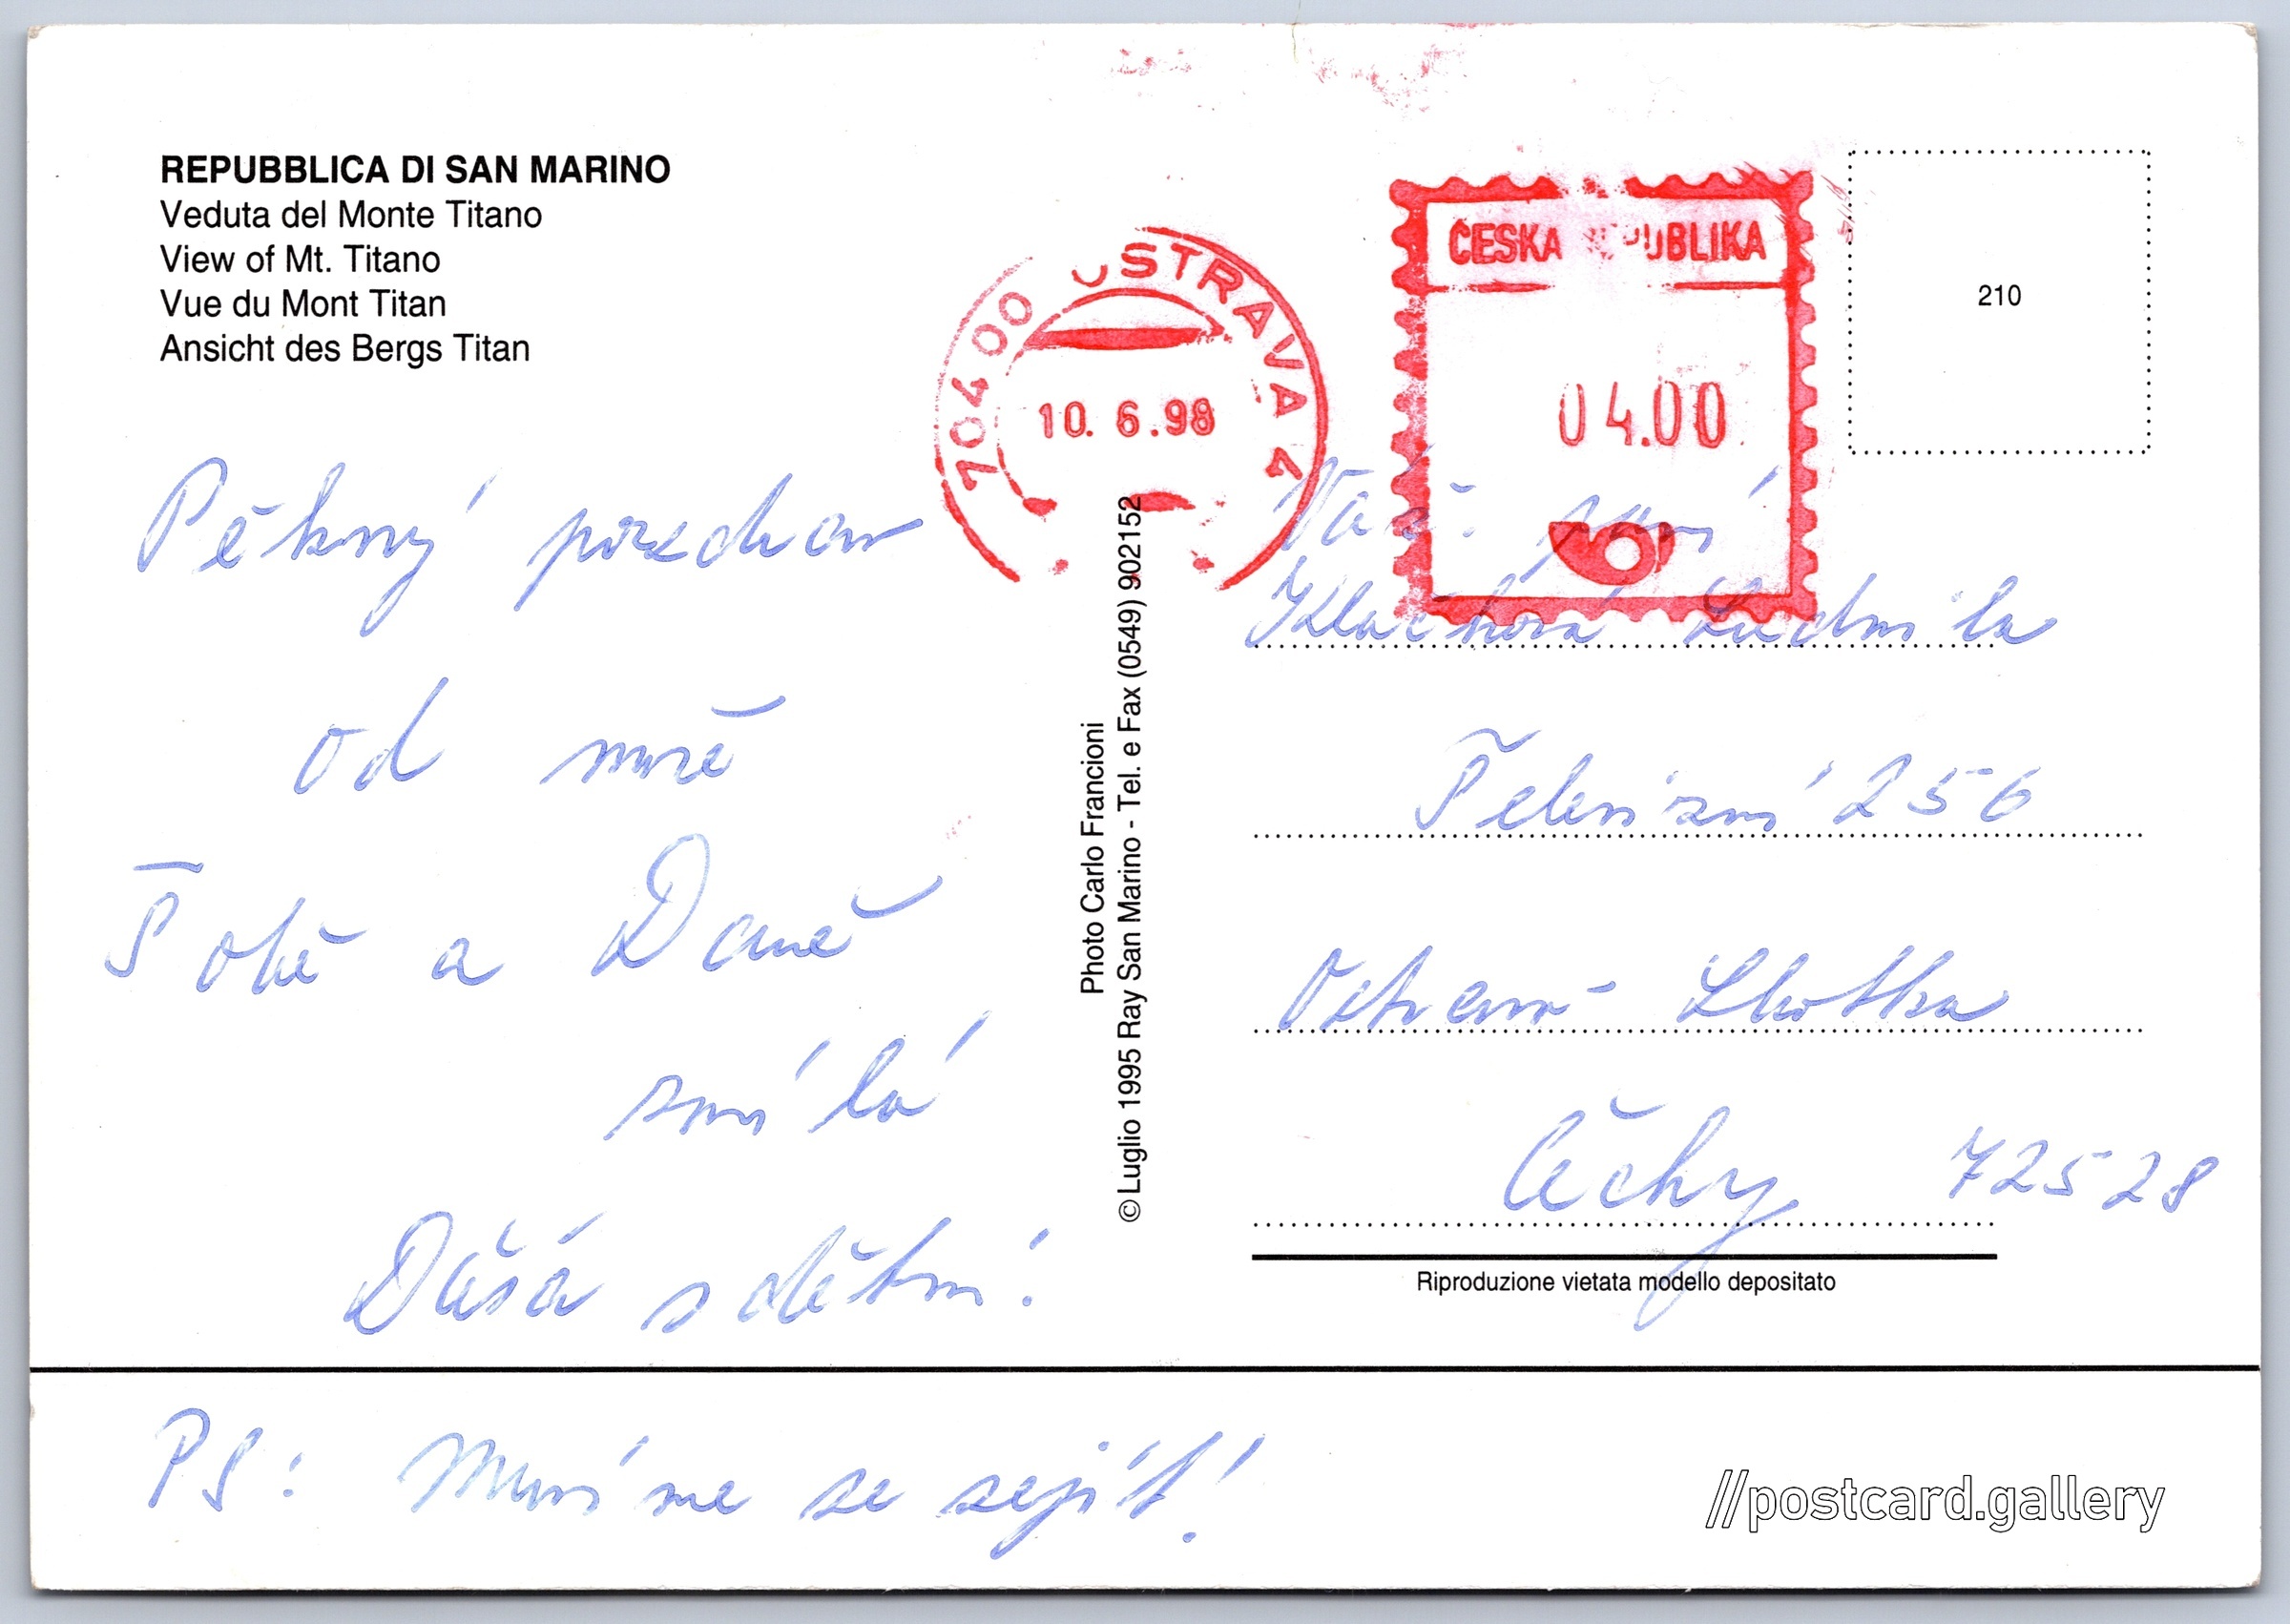 REPUBBLICA DI SAN MARINO
Veduta del Monte Titano
View of Mt. Titano
Vue du Mont Titan
Ansicht des Bergs Titan
70400 OSTRAVA 4
10. 6.98
ČESKÁ REPUBLIKA
04.00
210
Pěkný pozdrav
od moře
Tobě a Daně
Dáša s dětmi!
PS: Musíme se sejít!
Photo Carlo Francioni
© Luglio 1995 Ray San Marino - Tel. e Fax (0549) 902152
Váž. paní
Ludmila
Televizní 256
Ostrava- Lhotka
Čechy 72528
Riproduzione vietata modello depositato
//postcard.gallery